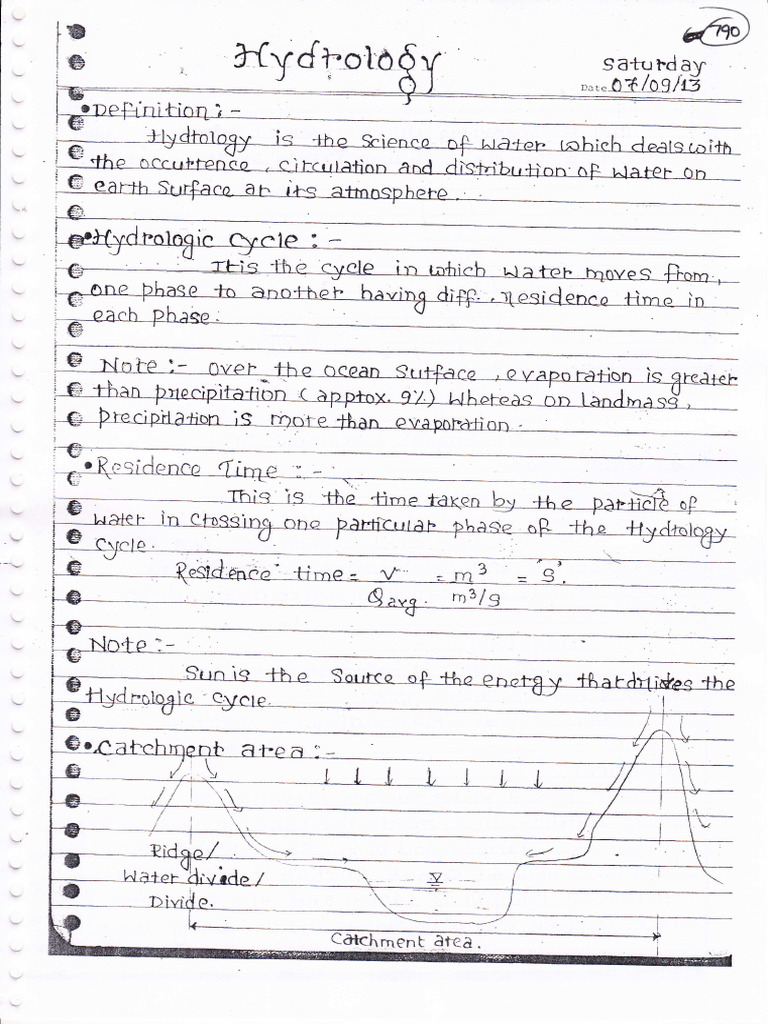 790
Hydrology
Saturday
Date. 07/09/13
• Definition :-
Hydrology is the Science of water which deals with
the occurrence, circulation and distribution of water on
earth surface at its atmosphere.
• Hydrologic cycle :-
It is the cycle in which water moves from,
one phase to another having diff.. Residence time in
each phase.
Note :- over the ocean surface, evaporation is greater
than precipitation (approx. 9%) whereas on landmass,
precipitation is more than evaporation.
• Residence Time :-
This is the time taken by the particle of
water in crossing one particular phase of the Hydrology
cycle.
Residence time = V = m³ = 's'.
Qavg. m³/s
Note :-
Sun is the Source of the energy that the
Hydrologic cycle.
• Catchment area :-
Ridge/
Water divide/
Divide.
Catchment area.